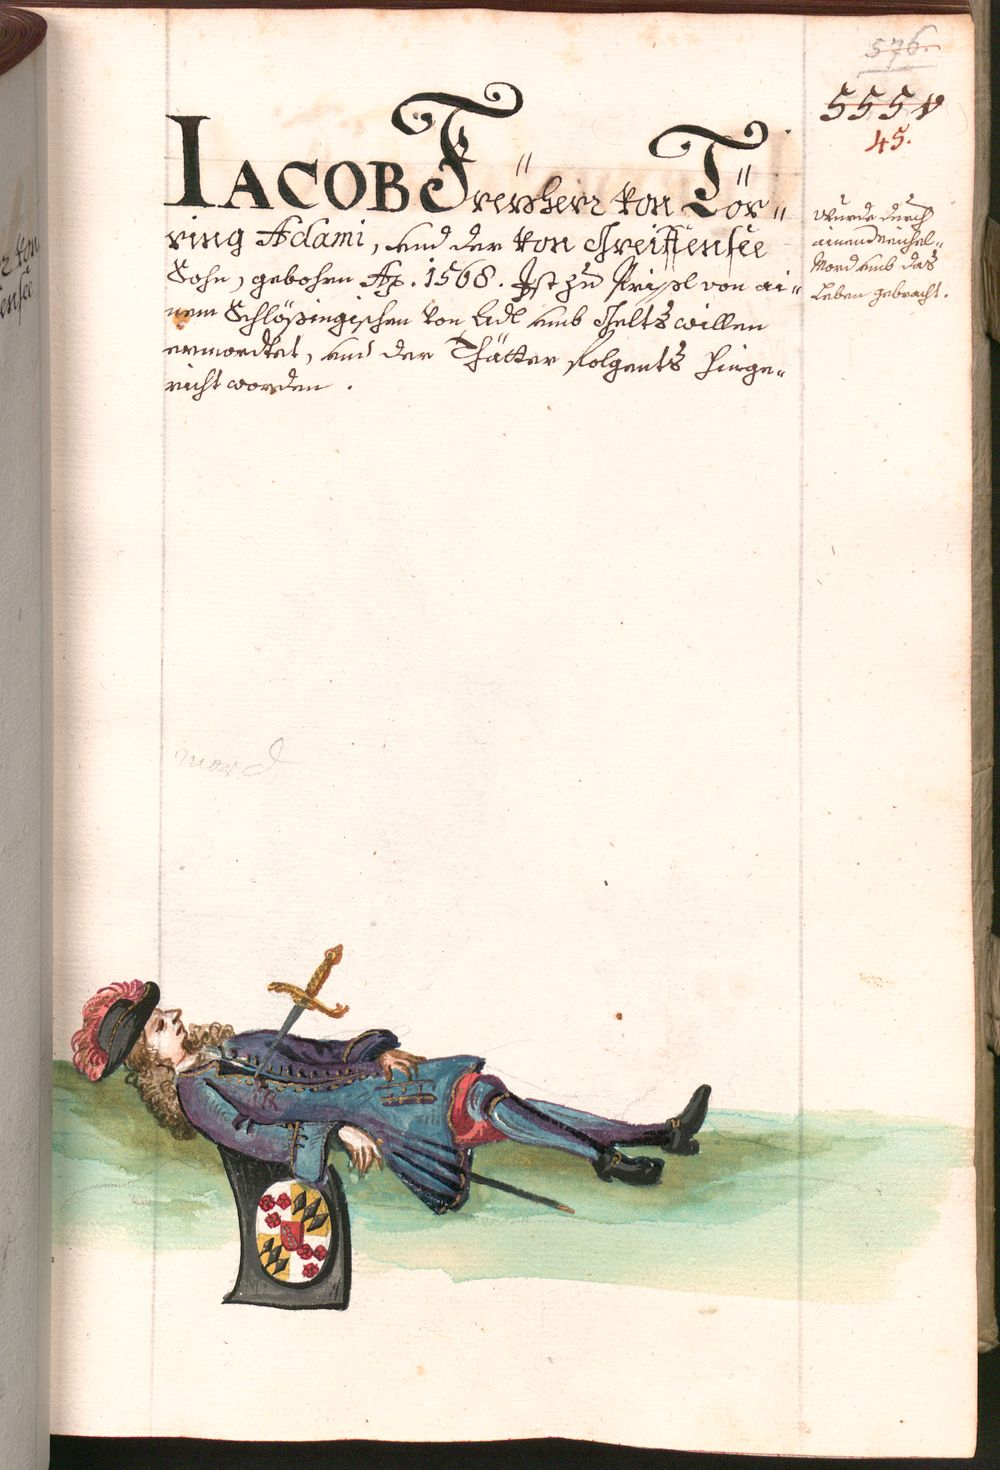 576.
5551
45.
IACOB Freÿherr von Tör„
ring Adami, und der von Greiffensee
Sohn, gebohrn Aō. 1568. Ist zu Prixl von ai„
nem Schlößingischen von Adl umb Gelts willen
ermordtet, und der Thätter folgents hinge„
richt worden .
Wurde durch
ainen Meichel„
Mord umb das
Leben gebracht.
mord